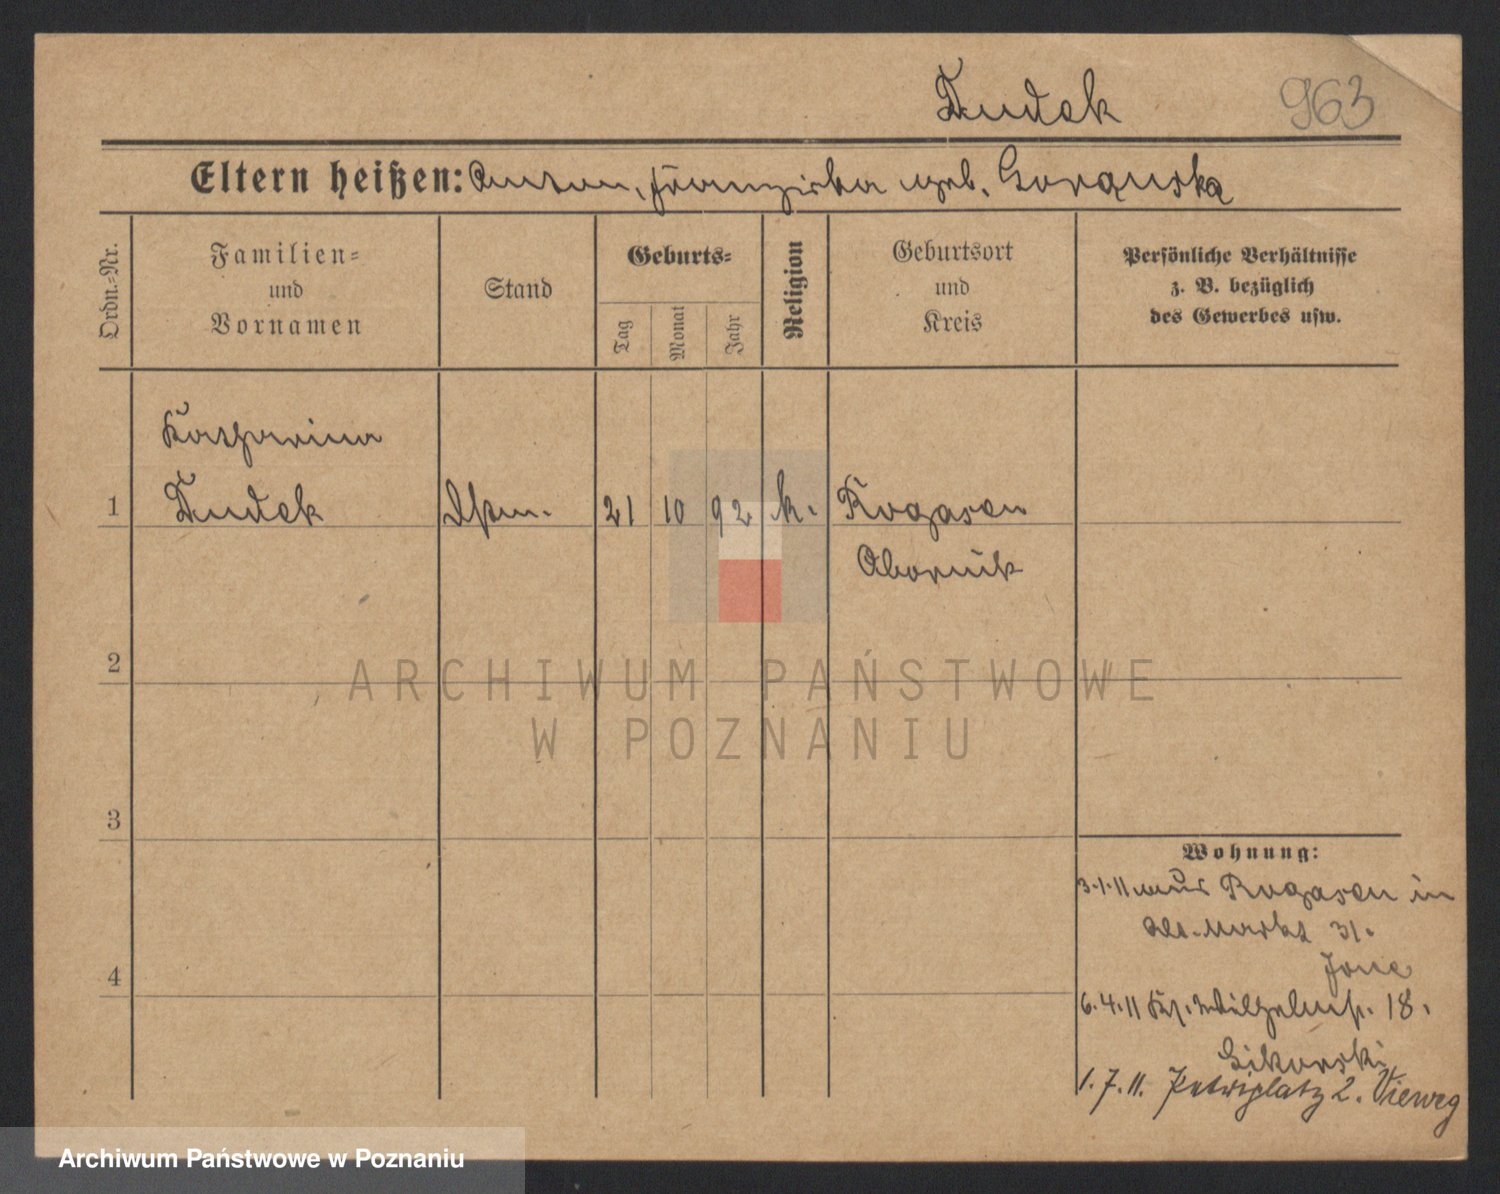 Dudek
963
Eltern heißen: Anton, Franziska geb. Gorgurska
Ordn.-Nr.
Familien=
und
Vornamen
Stand
Geburts=
Tag
Monat
Jahr
Religion
Geburtsort
und
Kreis
Persönliche Verhältnisse
z. B. bezüglich
des Gewerbes usw.
Katharina
1 Dudek Dstm. 21 10 92 k. Rogasen
Obornik
2
ARCHIWUM PAŃSTWOWE
W POZNANIU
3
Wohnung:
3.1.11 aus Rogasen in
Alt. Markt 31.
4
6.4.11 Ks. Wilhelmst. 18.
Sikorski
1.7.11. Petriplatz 2. Vieweg
Archiwum Państwowe w Poznaniu